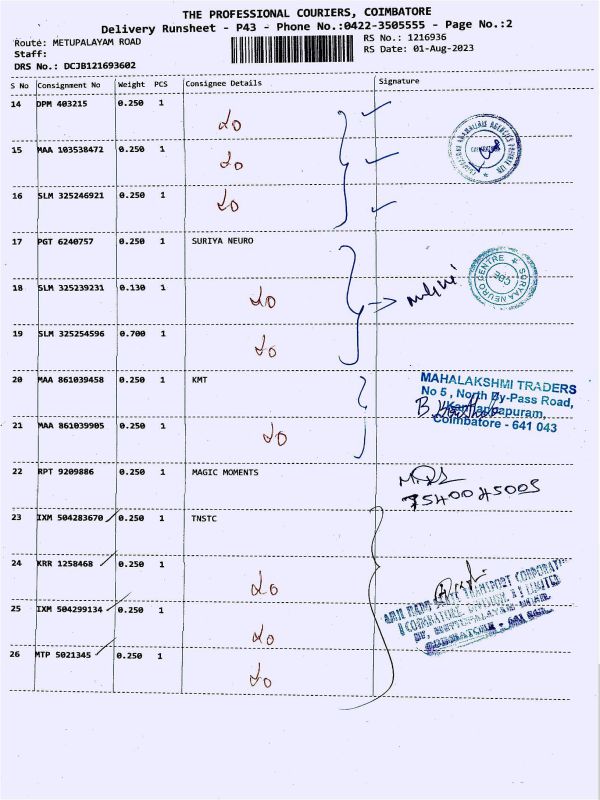 THE PROFESSIONAL COURIERS, COIMBATORE
Delivery Runsheet - P43 - Phone No.:0422-3505555 - Page No.:2
Route: METUPALAYAM ROAD
RS No.: 1216936
Staff:
RS Date: 01-Aug-2023
DRS No.: DCJB121693602
S No Consignment No Weight PCS Consignee Details Signature
14 DPM 403215 0.250 1
15 MAA 103538472 0.250 1
16 SLM 325246921 0.250 1
17 PGT 6240757 0.250 1 SURIYA NEURO
18 SLM 325239231 0.130 1
SURYAA NEURO CENTRE
CBE
19 SLM 325254596 0.700 1
20 MAA 861039458 0.250 1 KMT
MAHALAKSHMI TRADERS
No 5, North By-Pass Road,
21 MAA 861039905 0.250 1
Coimbatore - 641 043
22 RPT 9209886 0.250 1 MAGIC MOMENTS
7540045005
23 IXM 504283670 0.250 1 TNSTC
24 KRR 1258468 0.250 1
25 IXM 504299134 0.250 1
26 MTP 5021345 0.250 1